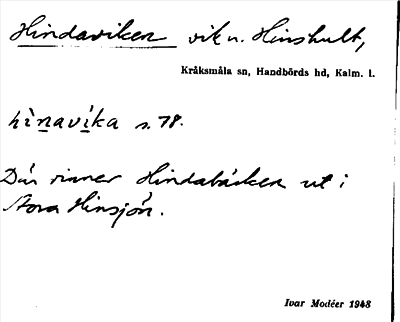 Hindaviken vik n. Hinshult,
Kråksmåla sn, Handbörds hd, Kalm. l.
hìnavíka s. 78.
Där rinner Hindabäcken ut i
Stora Hinsjön.
Ivar Modéer 1943